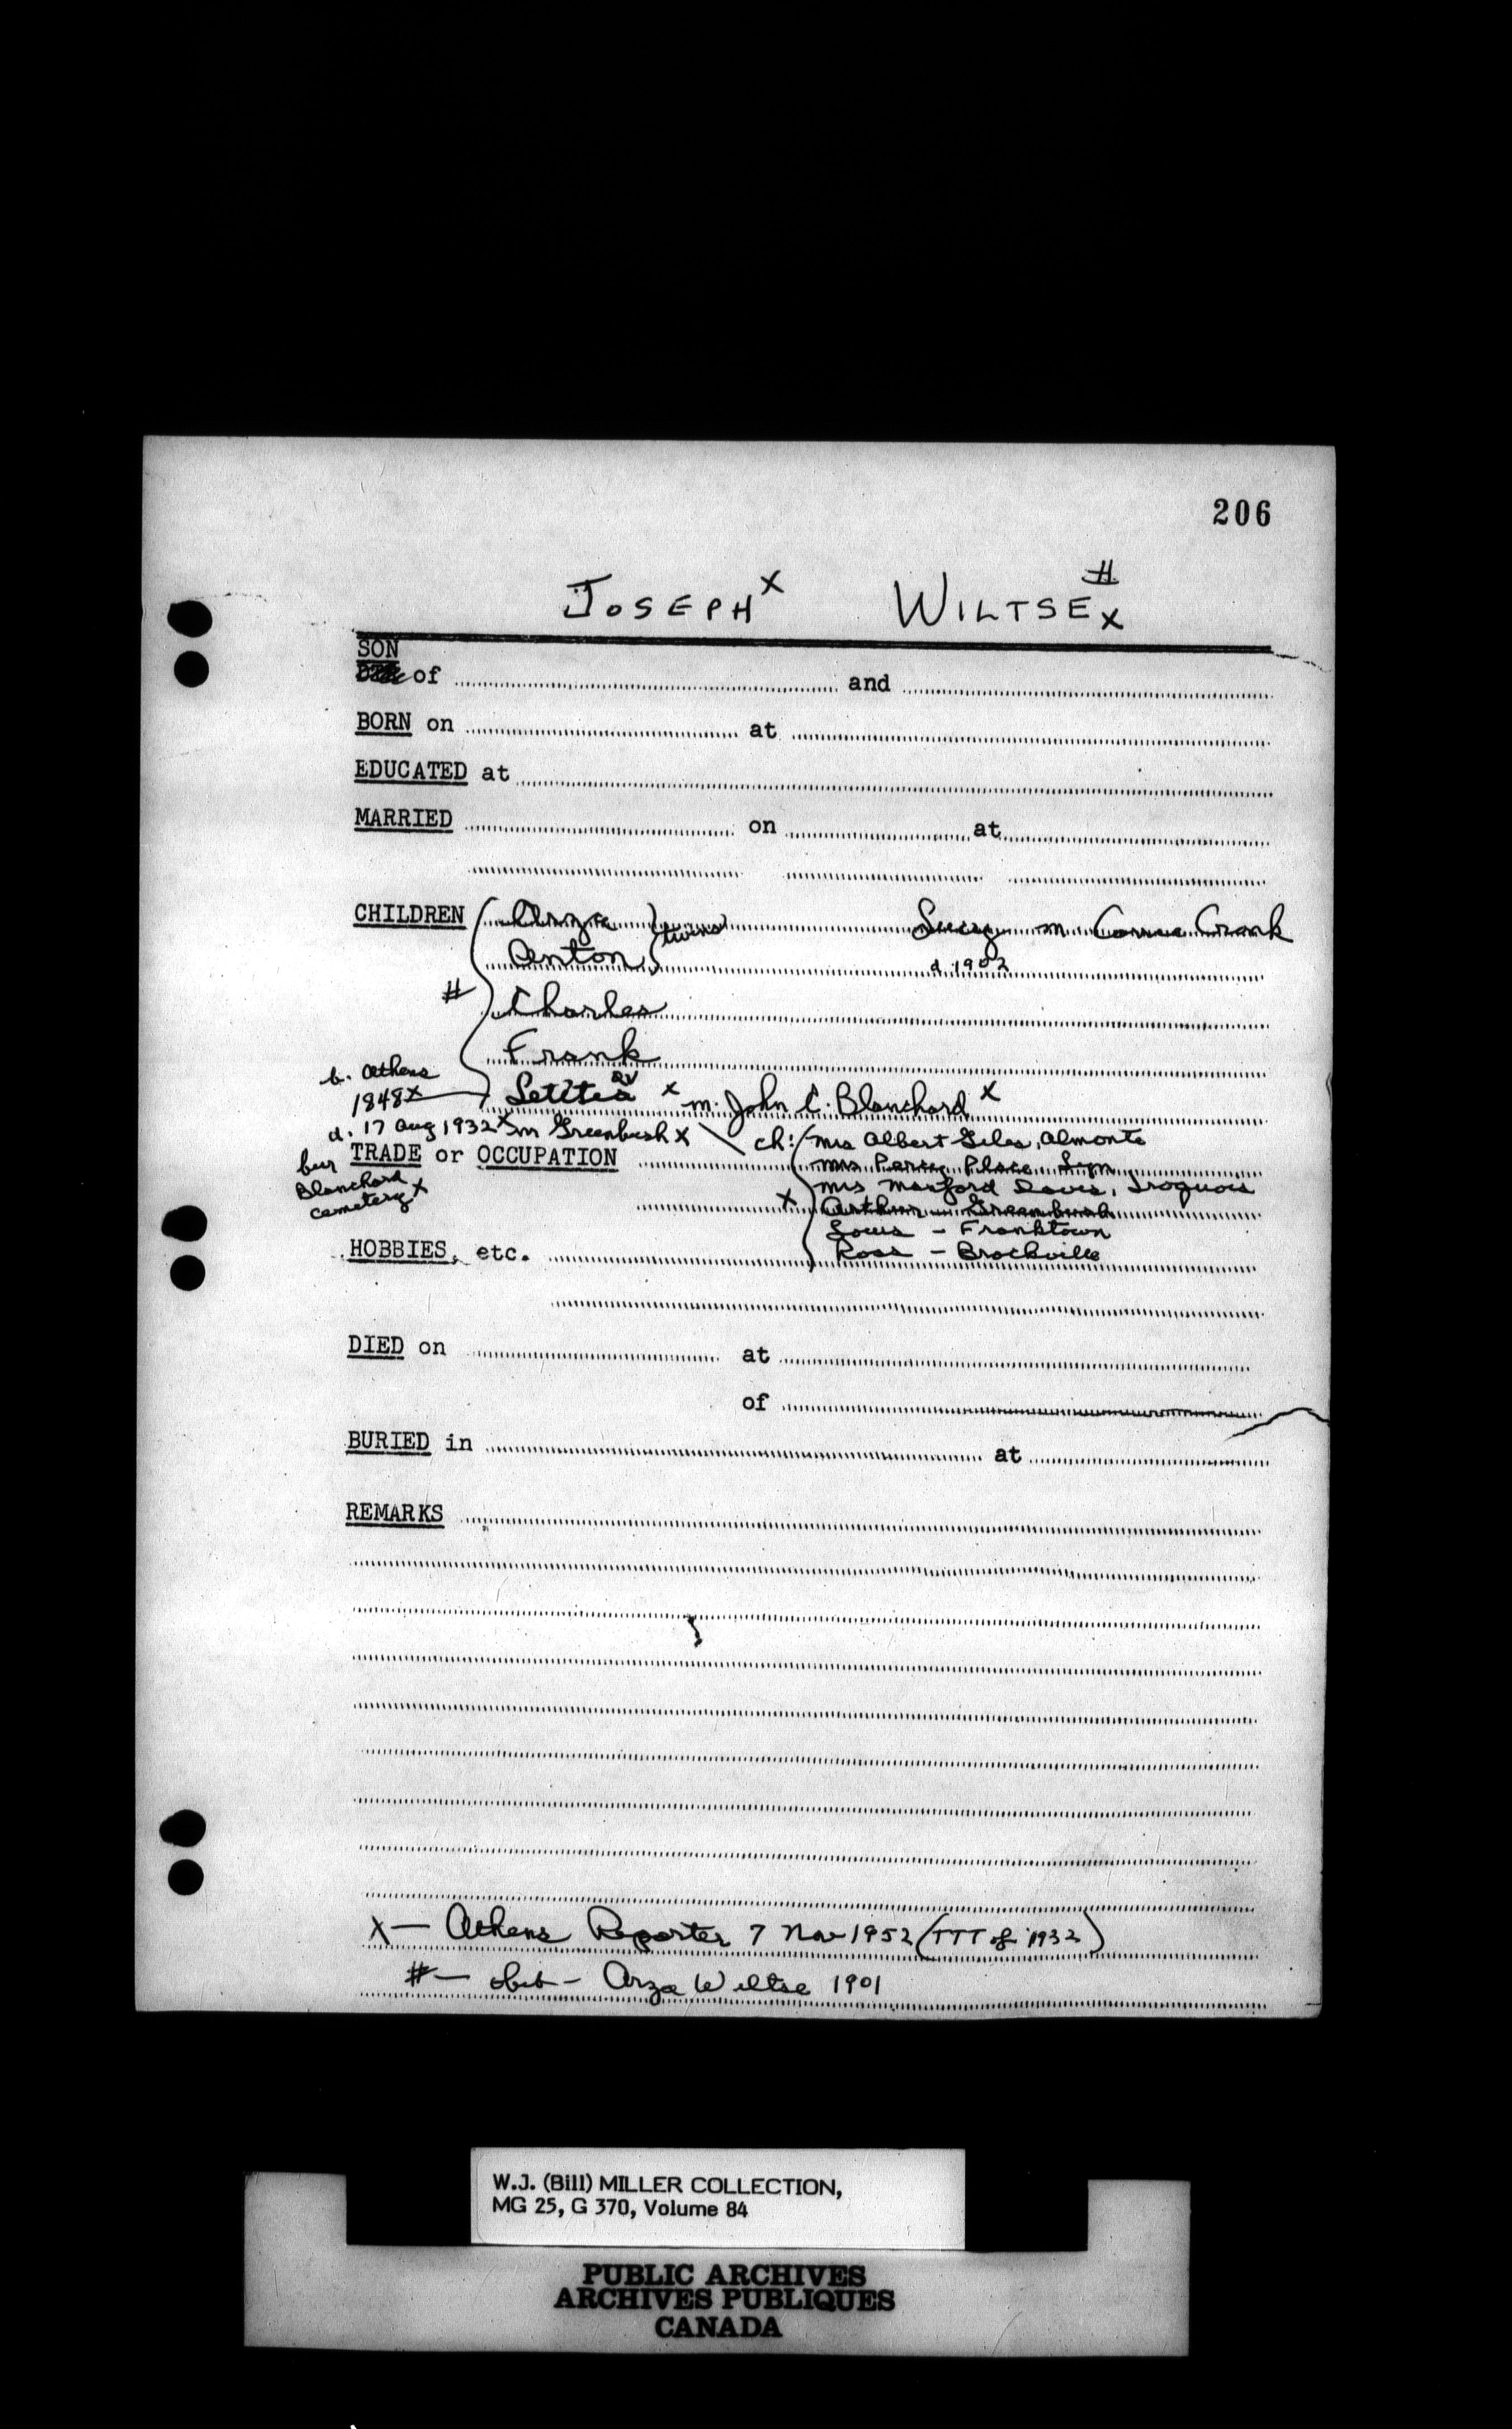 206
JOSEPH x WILTSE # x
SON
of and
BORN on at
EDUCATED at
MARRIED on at
CHILDREN Arza
Anton } twins
Lucy m Crank
d 1902
# Charles
Frank
b. Athens
1848x
Letitia x m. John C. Blanchard x
d. 17 Aug 1932 x in Greenbush x
ch: Mrs Albert Giles, Almonte
TRADE or OCCUPATION
Mrs Percy Place Lyn
bur
Blanchard
cemetery x
Mrs Morford Davis, Iroquois
x Arthur Greenbush
Louis - Franktown
HOBBIES, etc.
Ross - Brockville
DIED on at
of
BURIED in at
REMARKS
x — Athens Reporter 7 Nov 1952 (TTT of 1932)
# — obit - Arza Wiltse 1901
W.J. (Bill) MILLER COLLECTION,
MG 25, G 370, Volume 84
PUBLIC ARCHIVES
ARCHIVES PUBLIQUES
CANADA